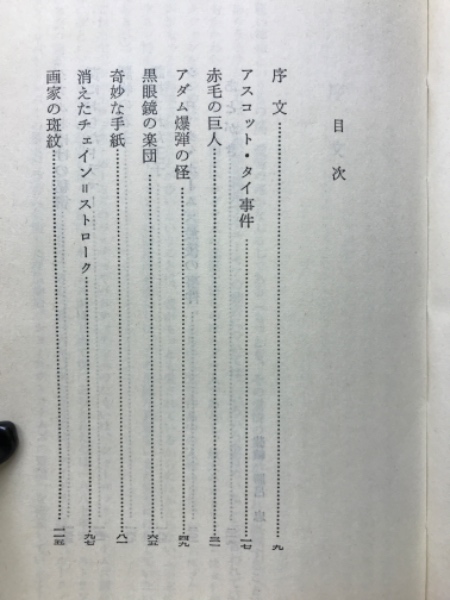 目次
序文……九
アスコット・タイ事件……一七
赤毛の巨人……三一
アダム爆弾の怪……四九
黒眼鏡の楽団……六五
奇妙な手紙……八一
消えたチェイン＝ストローク……九七
画家の斑紋……一一五